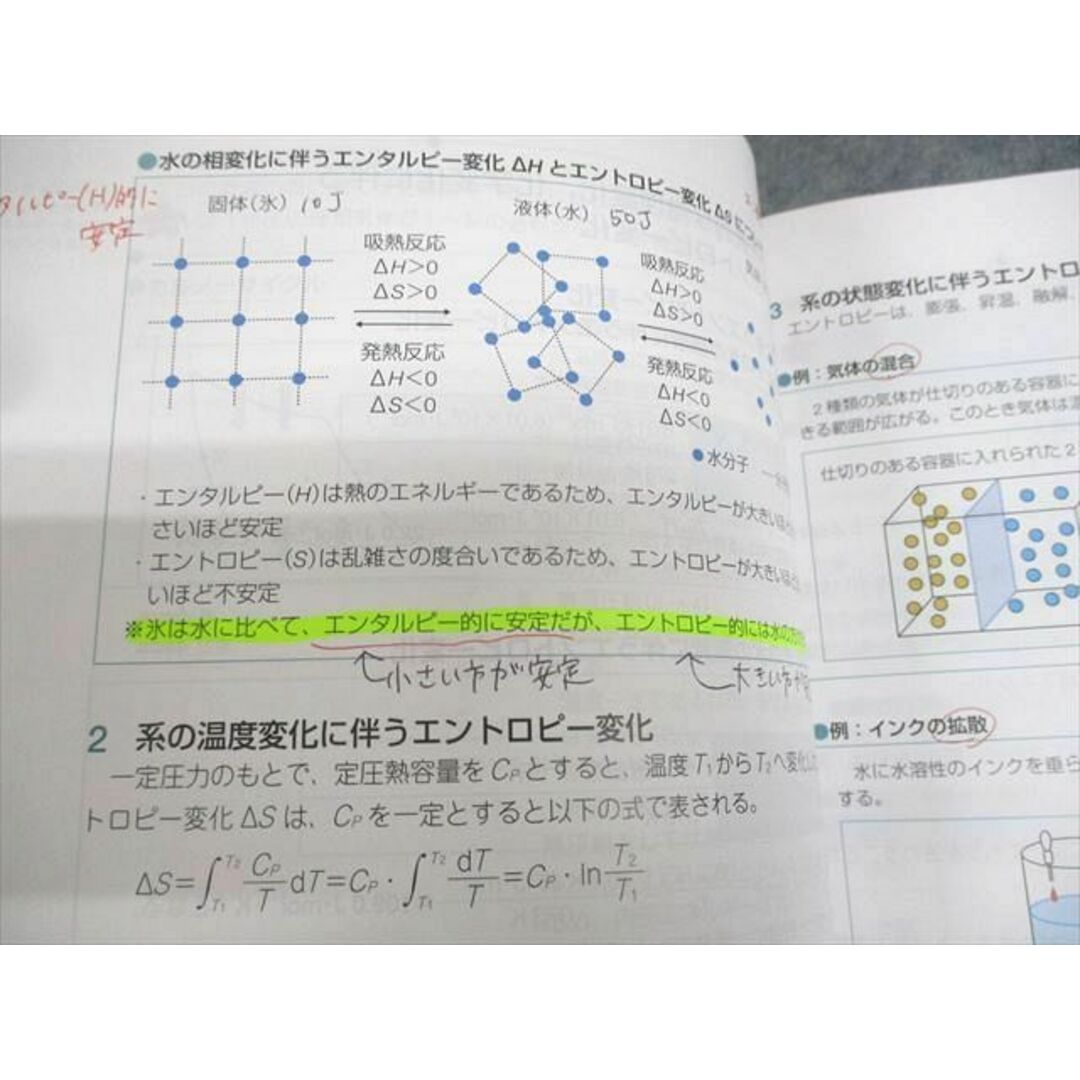 ●水の相変化に伴うエンタルピー変化 ΔHとエントロピー変化 ΔS
タルピー(H)的に
安定
固体(氷) 10J
液体(水) 50J
吸熱反応
ΔH>0
ΔS>0
発熱反応
ΔH<0
ΔS<0
吸熱反応
ΔH>0
ΔS>0
発熱反応
ΔH<0
ΔS<0
●水分子
・エンタルピー(H)は熱のエネルギーであるため、エンタルピーが大きい
さいほど安定
・エントロピー(S)は乱雑さの度合いであるため、エントロピーが大きい
いほど不安定
※氷は水に比べて、エンタルピー的に安定だが、エントロピー的には水の方
小さい方が安定
大きい方が
2 系の温度変化に伴うエントロピー変化
一定圧力のもとで、定圧熱容量をCPとすると、温度T1からT2へ変化し
トロピー変化ΔSは、CPを一定とすると以下の式で表される。
ΔS=∫T1T2 CP/T dT=CP・∫T1T2 dT/T=CP・ln T2/T1
3 系の状態変化に伴うエントロ
エントロピーは、膨張、昇温、融解、
●例：気体の混合
2種類の気体が仕切りのある容器に
きる範囲が広がる。このとき気体は
仕切りのある容器に入れられた2
●例：インクの拡散
水に水溶性のインクを垂ら
する。